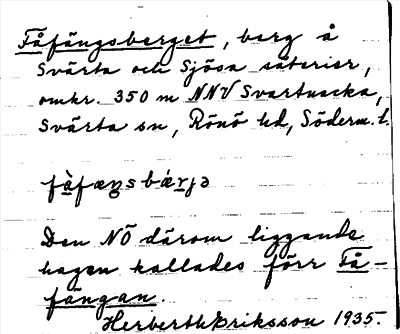 Fåfängsberget, berg å
Svärta och Sjösa säterier,
omkr. 350 m NNV Svartnacka,
Svärta sn, Rönö hd, Söderm. l.
få̀fæŋsbǽrjə
Den NÖ därom liggande
hagen kallades förr Få-
fängan.
Herberth Eriksson 1935.